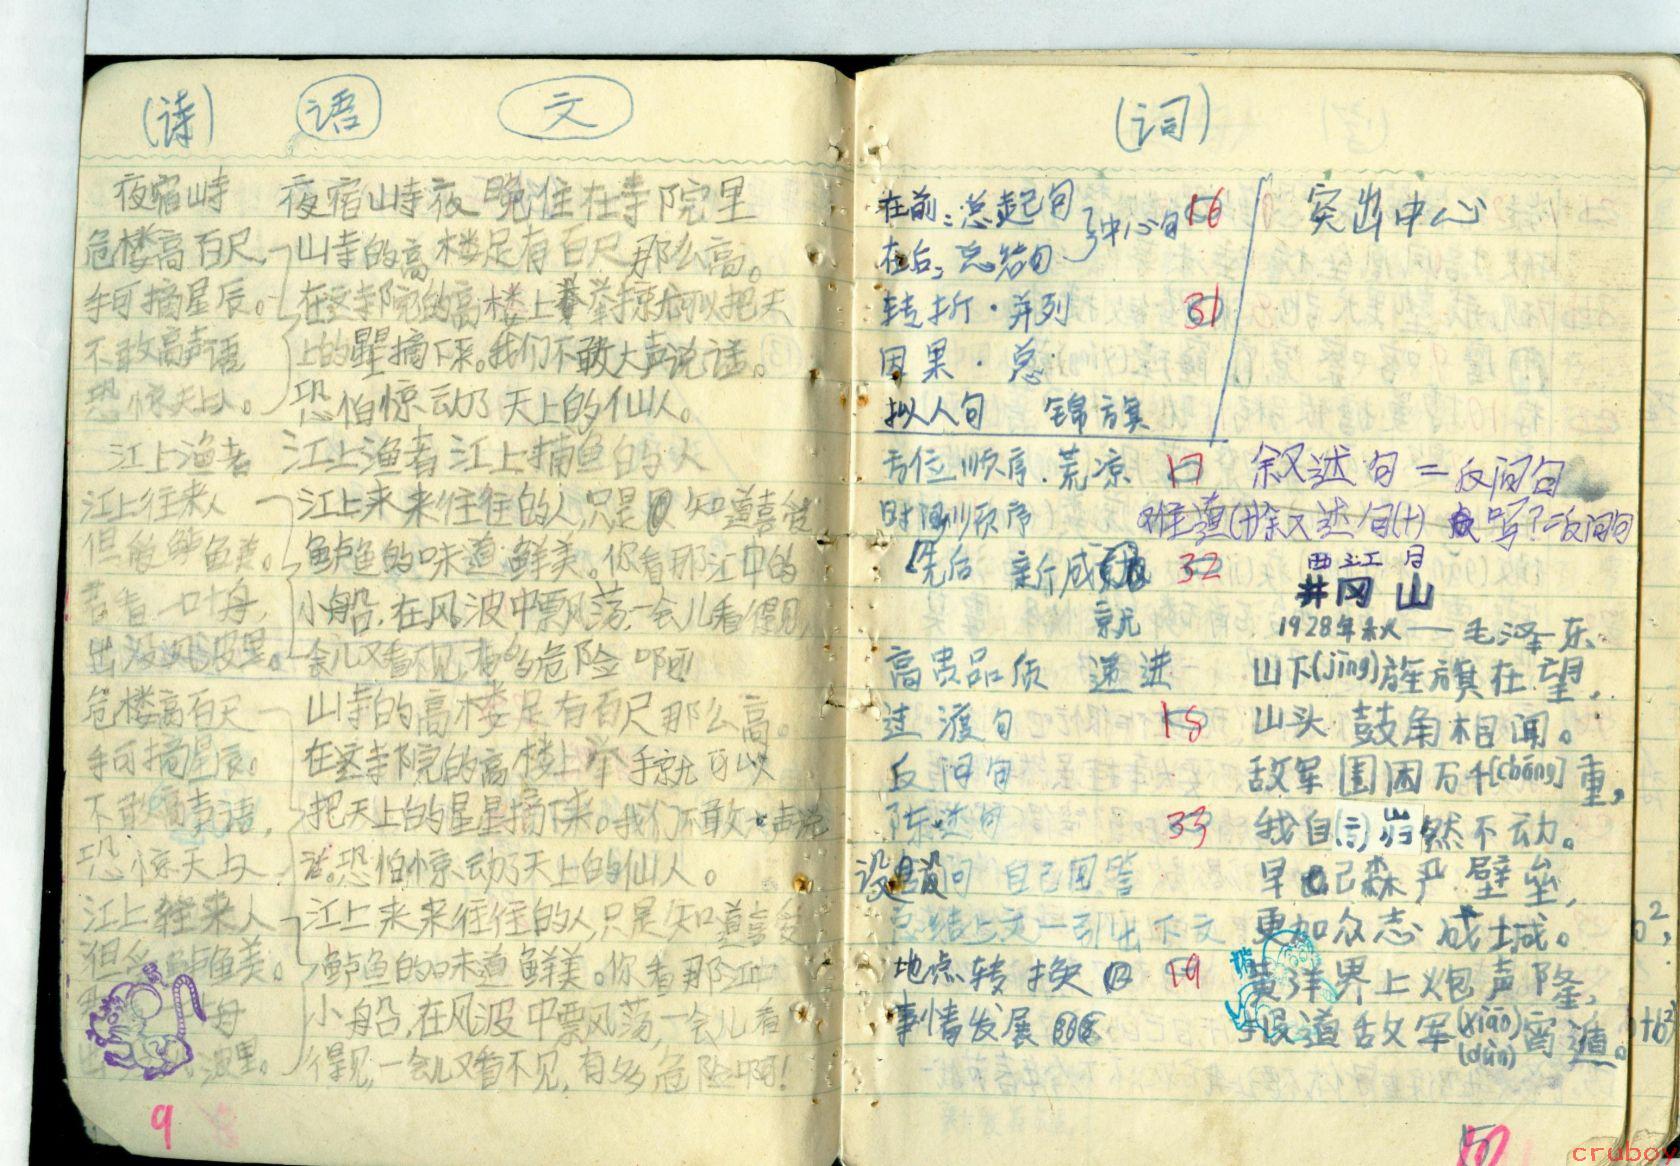 (诗) 语 文
夜宿山寺 夜宿山寺夜晚住在寺院里
危楼高百尺, 山寺的高楼足有百尺那么高。
手可摘星辰。 在这寺院的高楼上举掠就可以把天
不敢高声语 上的星星摘下来。我们不敢大声说话。
恐惊天上人。 恐怕惊动了天上的仙人。
江上渔者 江上渔者江上捕鱼的人
江上往来人 江上来来往往的人,只是知道喜爱
但爱鲈鱼美。 鲈鱼的味道鲜美。你看那江中的
君看一叶舟, 小船,在风波中票风荡,一会儿看得见,
出没风波里。 一会儿又看不见,有的危险啊!
危楼高百天 山寺的高楼足有百尺那么高。
手可摘星辰。 在这寺院的高楼上举手就可以
不敢高声语, 把天上的星星摘下来。我们不敢大声说
恐惊天与 话。恐怕惊动了天上的仙人。
江上往来人 江上来来往往的人,只是知道喜爱
但 鲈鱼美。 鲈鱼的味道鲜美。你看那江中
舟 小船,在风波中票风荡,一会儿看
波里。 得见,一会儿又看不见,有多危险啊!
9
(词)
在前:总起句 中心句 16 突出中心
在后:总结句
转折·并列 31
因果·总
拟人句 锦旗
方位顺序.荒凉 17 叙述句=反问句
时间顺序 难道(+叙述句(+) 吗?=反问句
先后 新成 32 西江月
就 井冈山
1928年秋——毛泽东
高贵品质 递进 山下(jīng)旌旗在望,
过渡句 18 山头鼓角相闻。
反问句 敌军围困万千[chóng]重,
陈述句 33 我自岿然不动。
设问 自己回答 早已森严壁垒,
总结上文—引出下文 更加众志成城。
地点转换 19 黄洋界上炮声隆,
事情发展 报道敌军(xiāo)(dùn)宵遁。
10
cruboy